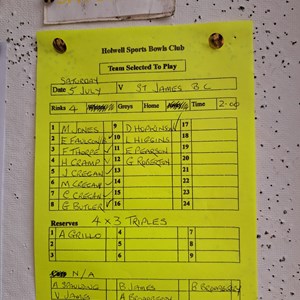 Holwell Sports Bowls Club
Team Selected To Play
SATURDAY
Date 5 JULY V ST JAMES B.C
Rinks 4 Greys Home Time 2-00
1 M JONES 9 D HOPKINSON 17
2 E FALCON 10 L HIGGINS 18
3 F THORPE 11 E PEARSON 19
4 H CRAMP 12 G ROBERTSON 20
5 J CREGAN 13 21
6 M CREGAN 14 22
7 C CREGAN 15 23
8 G BUTLER 16 24
Reserves 4 x 3 TRIPLES
1 A GRILLO 4 7
2 5 8
3 6 9
N/A
B JAMES
V JAMES